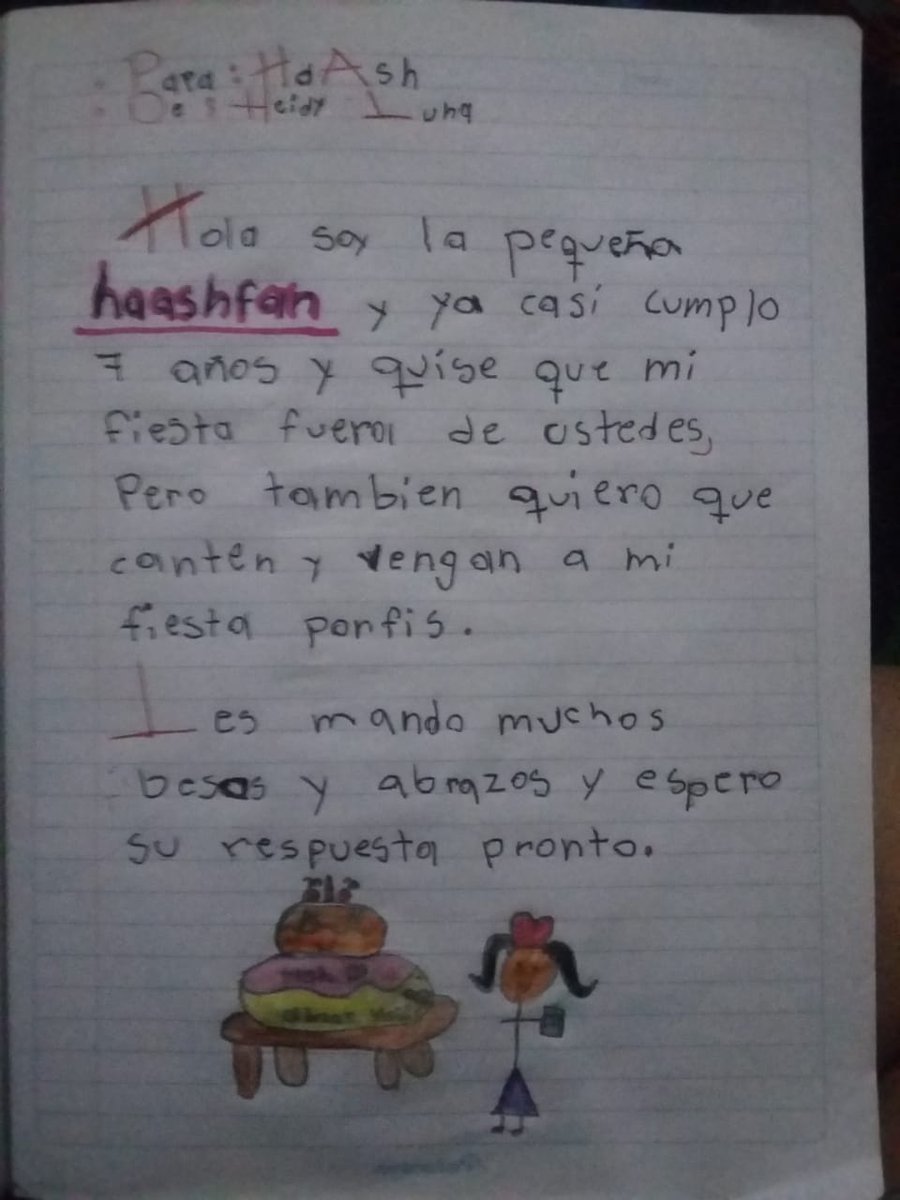 Para: HaAsh
De: Heidy Luna
Hola soy la pequeña
haashfan y ya casi cumplo
7 años y quise que mi
fiesta fuera de ustedes,
Pero tambien quiero que
canten y vengan a mi
fiesta porfis.
Les mando muchos
besos y abrazos y espero
su respuesta pronto.